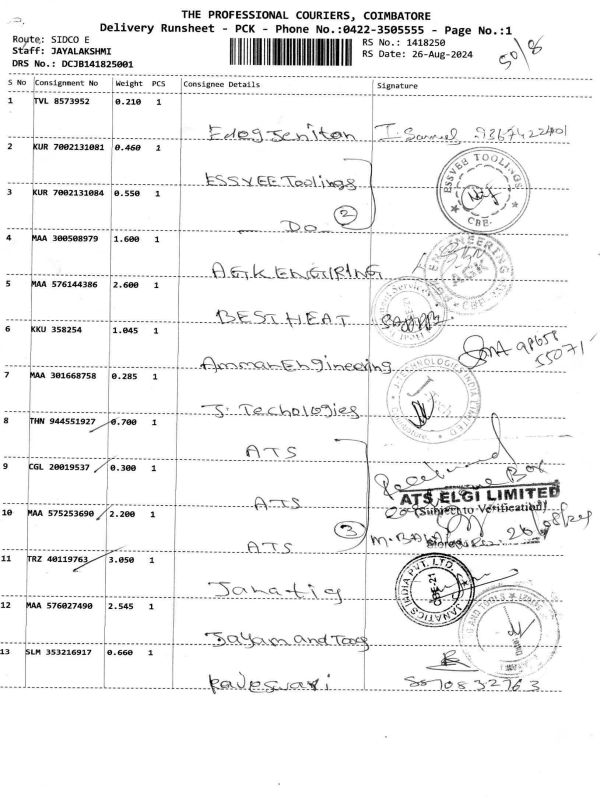 THE PROFESSIONAL COURIERS, COIMBATORE
Delivery Runsheet - PCK - Phone No.:0422-3505555 - Page No.:1
Route: SIDCO E
Staff: JAYALAKSHMI
DRS No.: DCJB141825001
RS No.: 1418250
RS Date: 26-Aug-2024
50/8
S No Consignment No Weight PCS Consignee Details Signature
1 TVL 8573952 0.210 1
Edogjeniton I. Samuel
2 KUR 7002131081 0.460 1
ESSVEE Toolings
ESSVEE TOOLINGS
CBE.
3 KUR 7002131084 0.550 1
2
Do
4 MAA 300508979 1.600 1
AGK ENGIRING
ENGINEERING
AGK
5 MAA 576144386 2.600 1
BEST HEAT
6 KKU 358254 1.045 1
Amman Engineering
98658
55071
7 MAA 301668758 0.285 1
J. Techologies
TECHNOLOGIES INDIA LIMITED
8 THN 944551927 0.700 1
ATS
9 CGL 20019537 0.300 1
ATS
Box
ATS ELGI LIMITED
(Subject to Verification)
10 MAA 575253690 2.200 1
3
ATS
26/08/24
11 TRZ 40119763 3.050 1
Janatig
JANATICS INDIA PVT. LTD.
CBE-21
12 MAA 576027490 2.545 1
Jayam and Toog
AND TOOLS
13 SLM 353216917 0.660 1